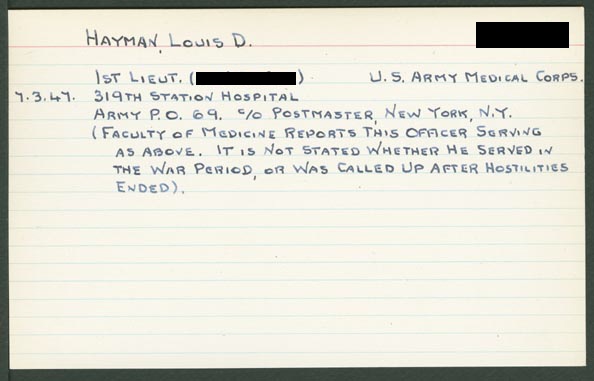 HAYMAN, LOUIS D.
1ST LIEUT. ( ) U.S. ARMY MEDICAL CORPS.
7.3.47. 319TH STATION HOSPITAL
ARMY P.O. 69. C/O POSTMASTER, NEW YORK, N.Y.
(FACULTY OF MEDICINE REPORTS THIS OFFICER SERVING
AS ABOVE. IT IS NOT STATED WHETHER HE SERVED IN
THE WAR PERIOD, OR WAS CALLED UP AFTER HOSTILITIES
ENDED).